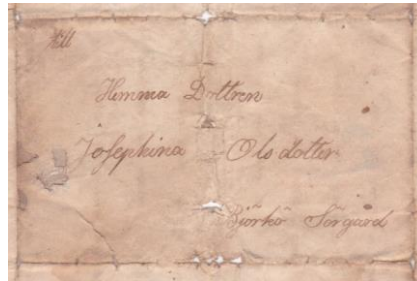 till
Hemma Dottren
Josephina Olsdotter
Björkö Sörgård